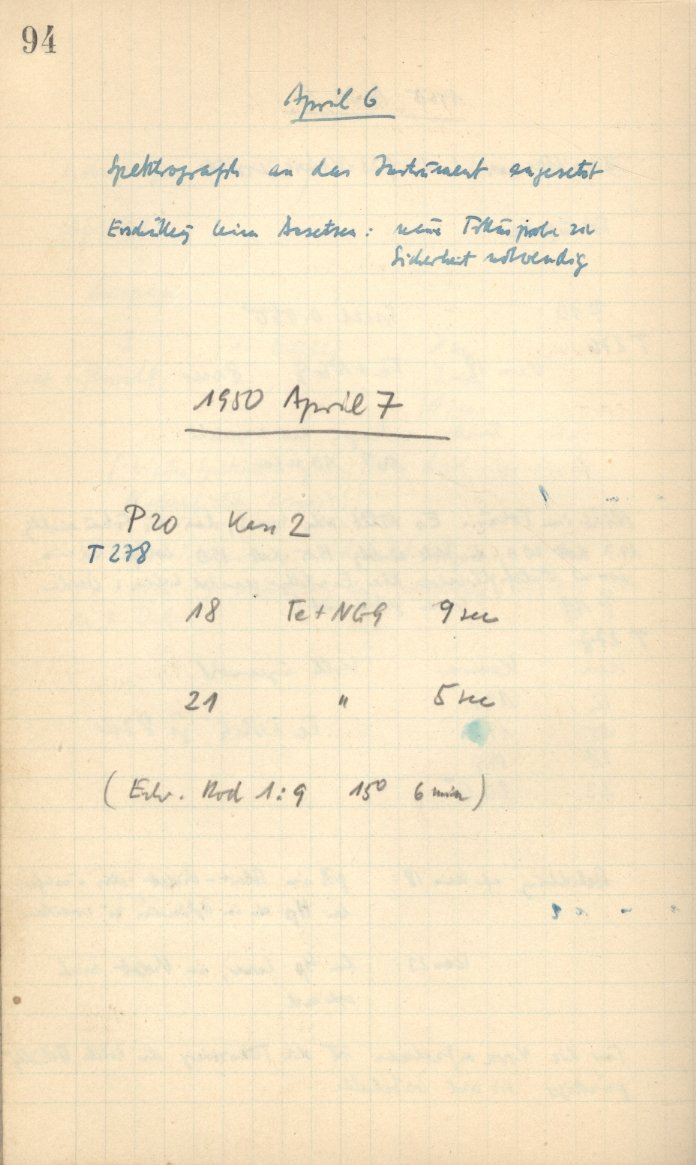 94
April 6
Spektrograph an das Instrument angesetzt
beim Ansetzen: neue Fokusprobe zur
Sicherheit notwendig
1950 April 7
P20 Kass 2
T278
18 Te+NG9 9 sec
21 " 5 sec
( Entw. Rod 1:9 15° 6 min )